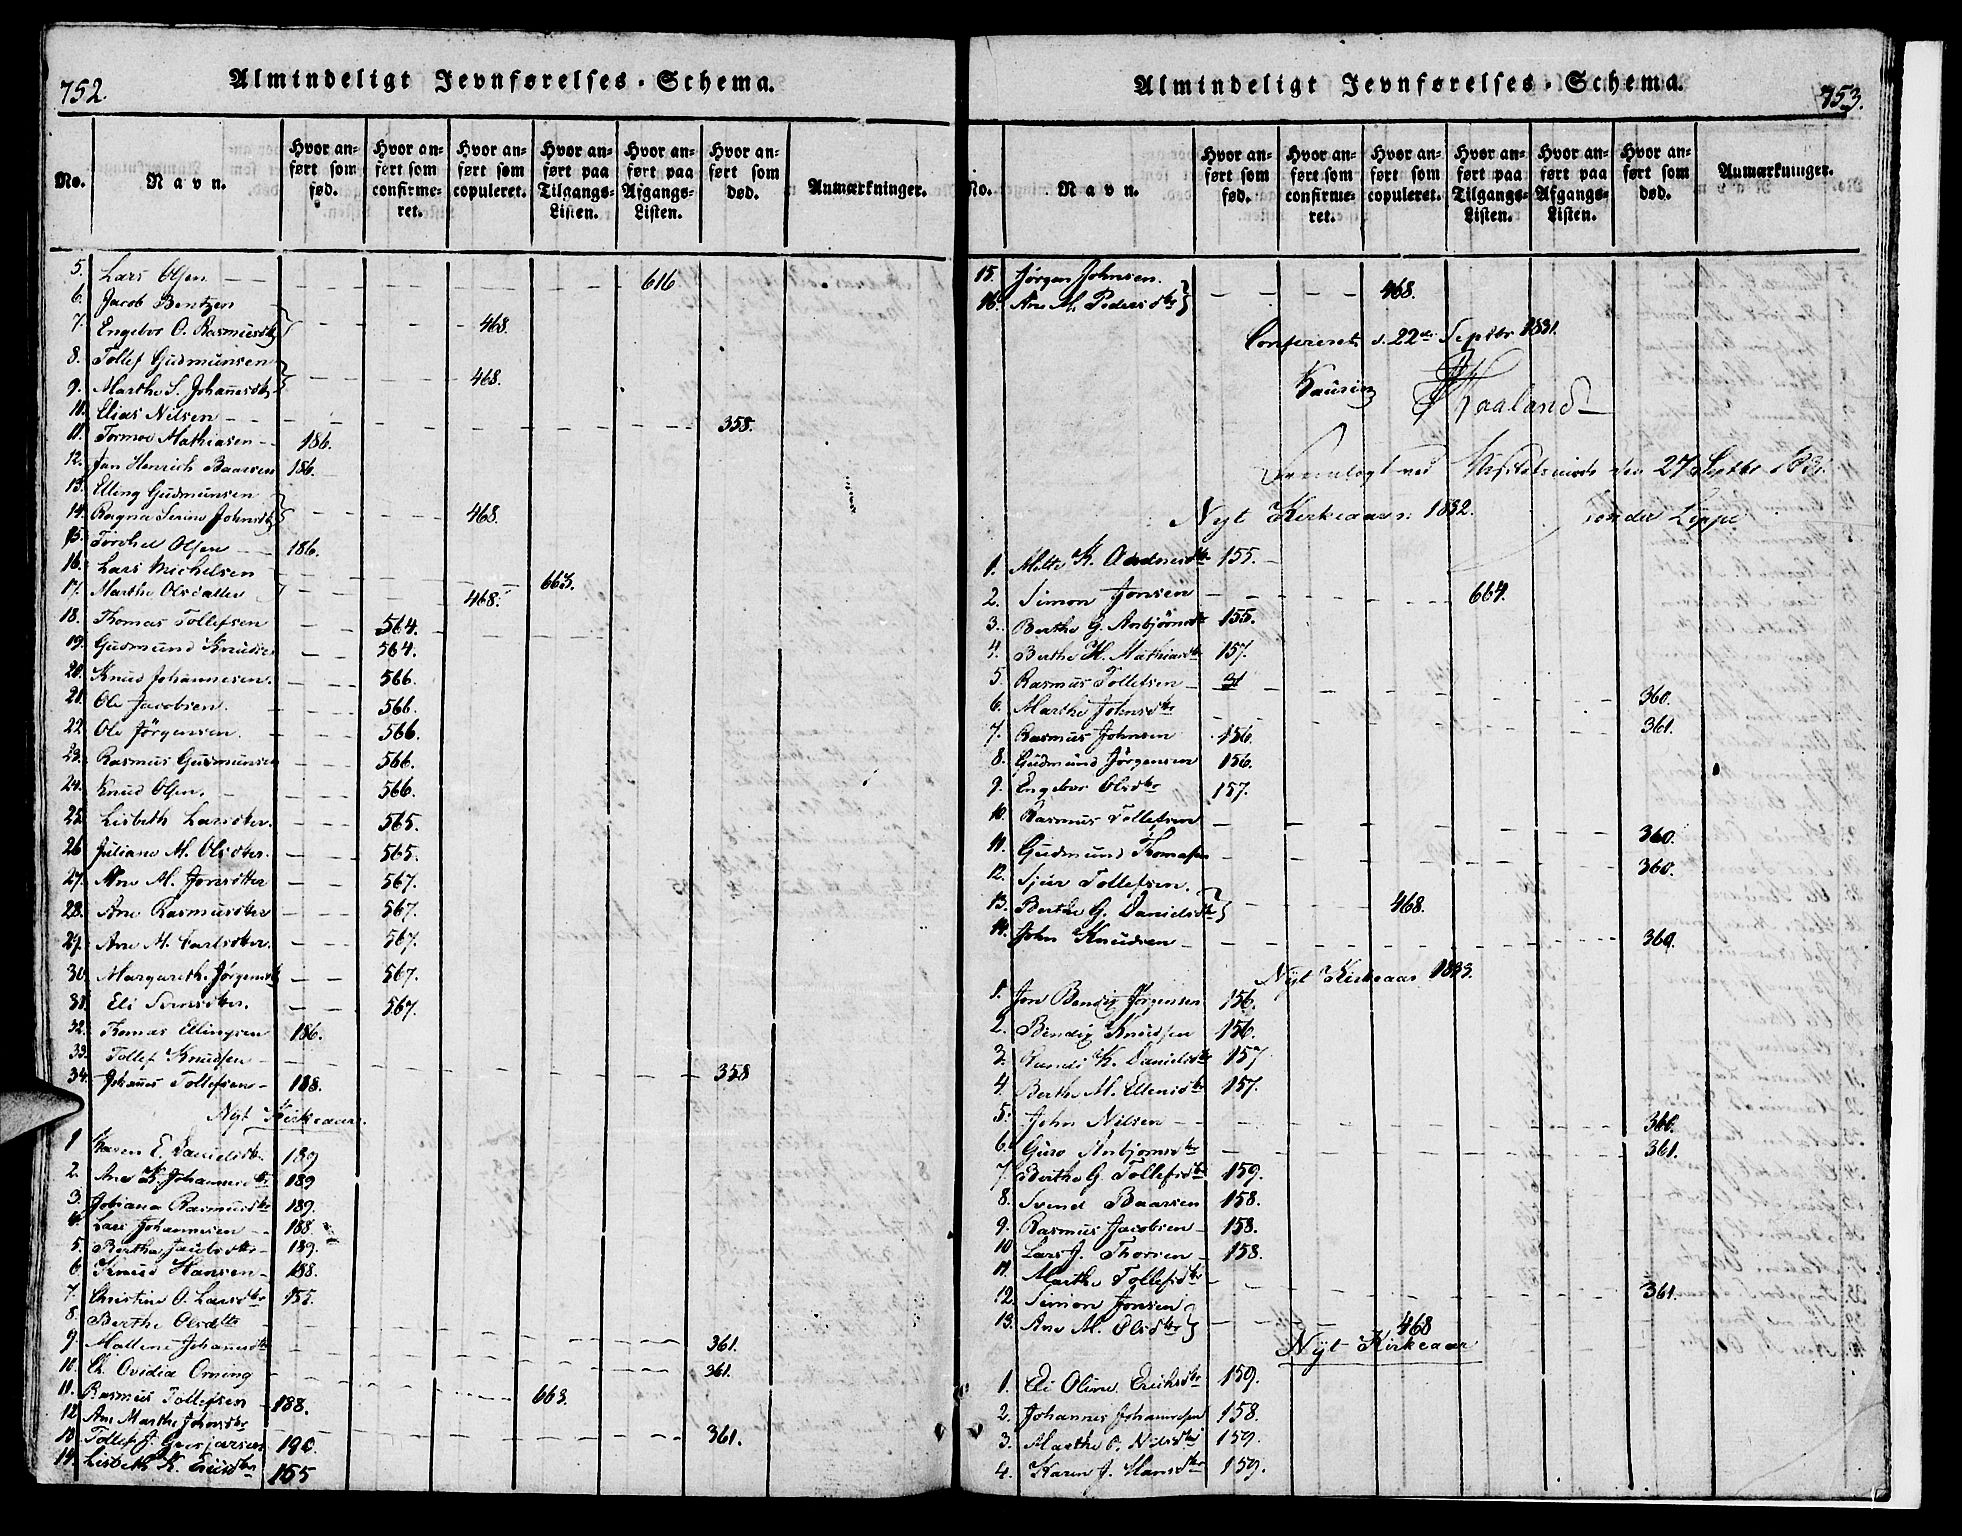 752.
Almindeligt Jevnførelses-Schema.
No.
Navn.
Hvor anført som fød.
Hvor anført som confirmeret.
Hvor anført som copuleret.
Hvor anført paa Tilgangs-Listen.
Hvor anført paa Afgangs-Listen.
Hvor anført som død.
Anmærkninger.
5. Lars Olsen 616
6. Jacob Bentzen
7. Engebor O. Rasmusdtr } 468.
8. Tollef Gudmunsen
9. Marthe S. Johannesdtr } 468.
10. Elias Nilsen 358.
11. Tormoe Mathiasen 186.
12. Jan Henrich Baarsen 186.
13. Elling Gudmunsen
14. Ragna Serine Johnsdtr } 468.
15. Torchel Olsen 186.
16. Lars Michelsen 663.
17. Marthe Olsdatter 468.
18. Thomas Tollefsen 564.
19. Gudmund Knudsen 564.
20. Knud Johannesen. 566.
21. Ole Jacobsen. 566.
22. Ole Jörgensen. 566.
23. Rasmus Gudmunsen 566.
24. Knud Olsen. 566.
25. Lisbeth Larsdter. 565.
26. Juliane M. Olsdter. 565.
27. Ane M. Jonsdtter 567.
28. Ane Rasmusdter 567.
29. Ane M. Carlsdter. 567.
30. Margareth Jörgensdtr 567.
31. Eli Svensdter. 567.
32. Thomas Ellingsen 186.
33. Tollef Knudsen 358
34. Johannes Tollefsen 188.
Nyt Kirkeaar.
1 Karen E. Danielsdtr. 189
2. Ane K. Johannesdtr. 189
3. Johanna Rasmusdtr 189.
4. Lars Johannesen 188.
5. Bertha Jacobsdtr 189.
6 Knud Hansen 188.
7. Christine O. Larsdtr 155.
8. Berthe Olsdtr
9. Mallene Johannesdtr 361.
10. Ovidia Orning 361.
11. Rasmus Tollefsen 188. 663.
12. Ane Marthe Johnsdtr 361.
13. Tollef J. 190.
14. Lisbeth K. 155
Almindeligt Jevnførelses-Schema.
753.
No.
Navn.
Hvor anført som fød.
Hvor anført som confirmeret.
Hvor anført som copuleret.
Hvor anført paa Tilgangs-Listen.
Hvor anført paa Afgangs-Listen.
Hvor anført som død.
Anmærkninger.
15. Jörgen Johnsen.
16. Ane M. Pedersdtr } 468.
Confereret d. 22de Septbr 1831.
Kaurin Haaland
Fremlagt ved den 27 Septbr 183
Nyt Kirkeaar. 1832. von der Lippe
1. Mette K. Aadnesdtr 155.
2. Simon Jonsen 664.
3. Berthe G. Asbjörnsdtr 155.
4. Berthe H. Mathiasdtr 157.
5. Rasmus Tollefsen 360.
6. Marthe Johnsdtr 361.
7. Rasmus Johnsen 156.
8. Gudmund Jörgensen 156.
9. Engebor Olsdtr 157.
10. Rasmus Tollefsen 360.
11. Gudmund Thomasen 360.
12. Sjur Tollefsen.
13. Berthe G. Danielsdtr } 468.
14. John Knudsen 360.
Nyt Kirkeaar 1833.
1. Jon Bendix Jörgensen 156.
2. Bendix Knudsen 156.
3. K. Danielsdtr 157
4 Berthe M. Ellensdtr 157.
5. John Nilsen 360.
6. Guro Asbjornsdtr 361.
7. Berthe G. Tollefsdtr 159.
8. Svend Baarsen 158.
9. Rasmus Jacobsen 158.
10. Lars J. Thorsen 158.
11. Marthe Tollefsdtr 361.
12. Simon Jonsen
13. Ane M. Olsdtr } 468
Nyt Kirkeaar
1. Eli Oline Erichsdtr 159.
2. Johannes Johannesen 158.
3. Marthe O. Nilsdtr 159.
4. Karen J. Hansdtr 159.